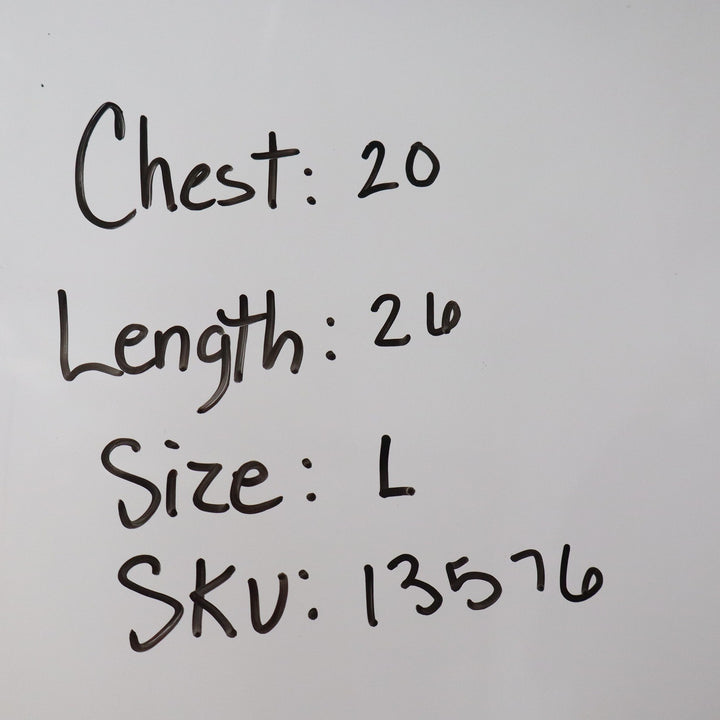 Chest: 20
Length: 26
Size: L
SKU: 13576